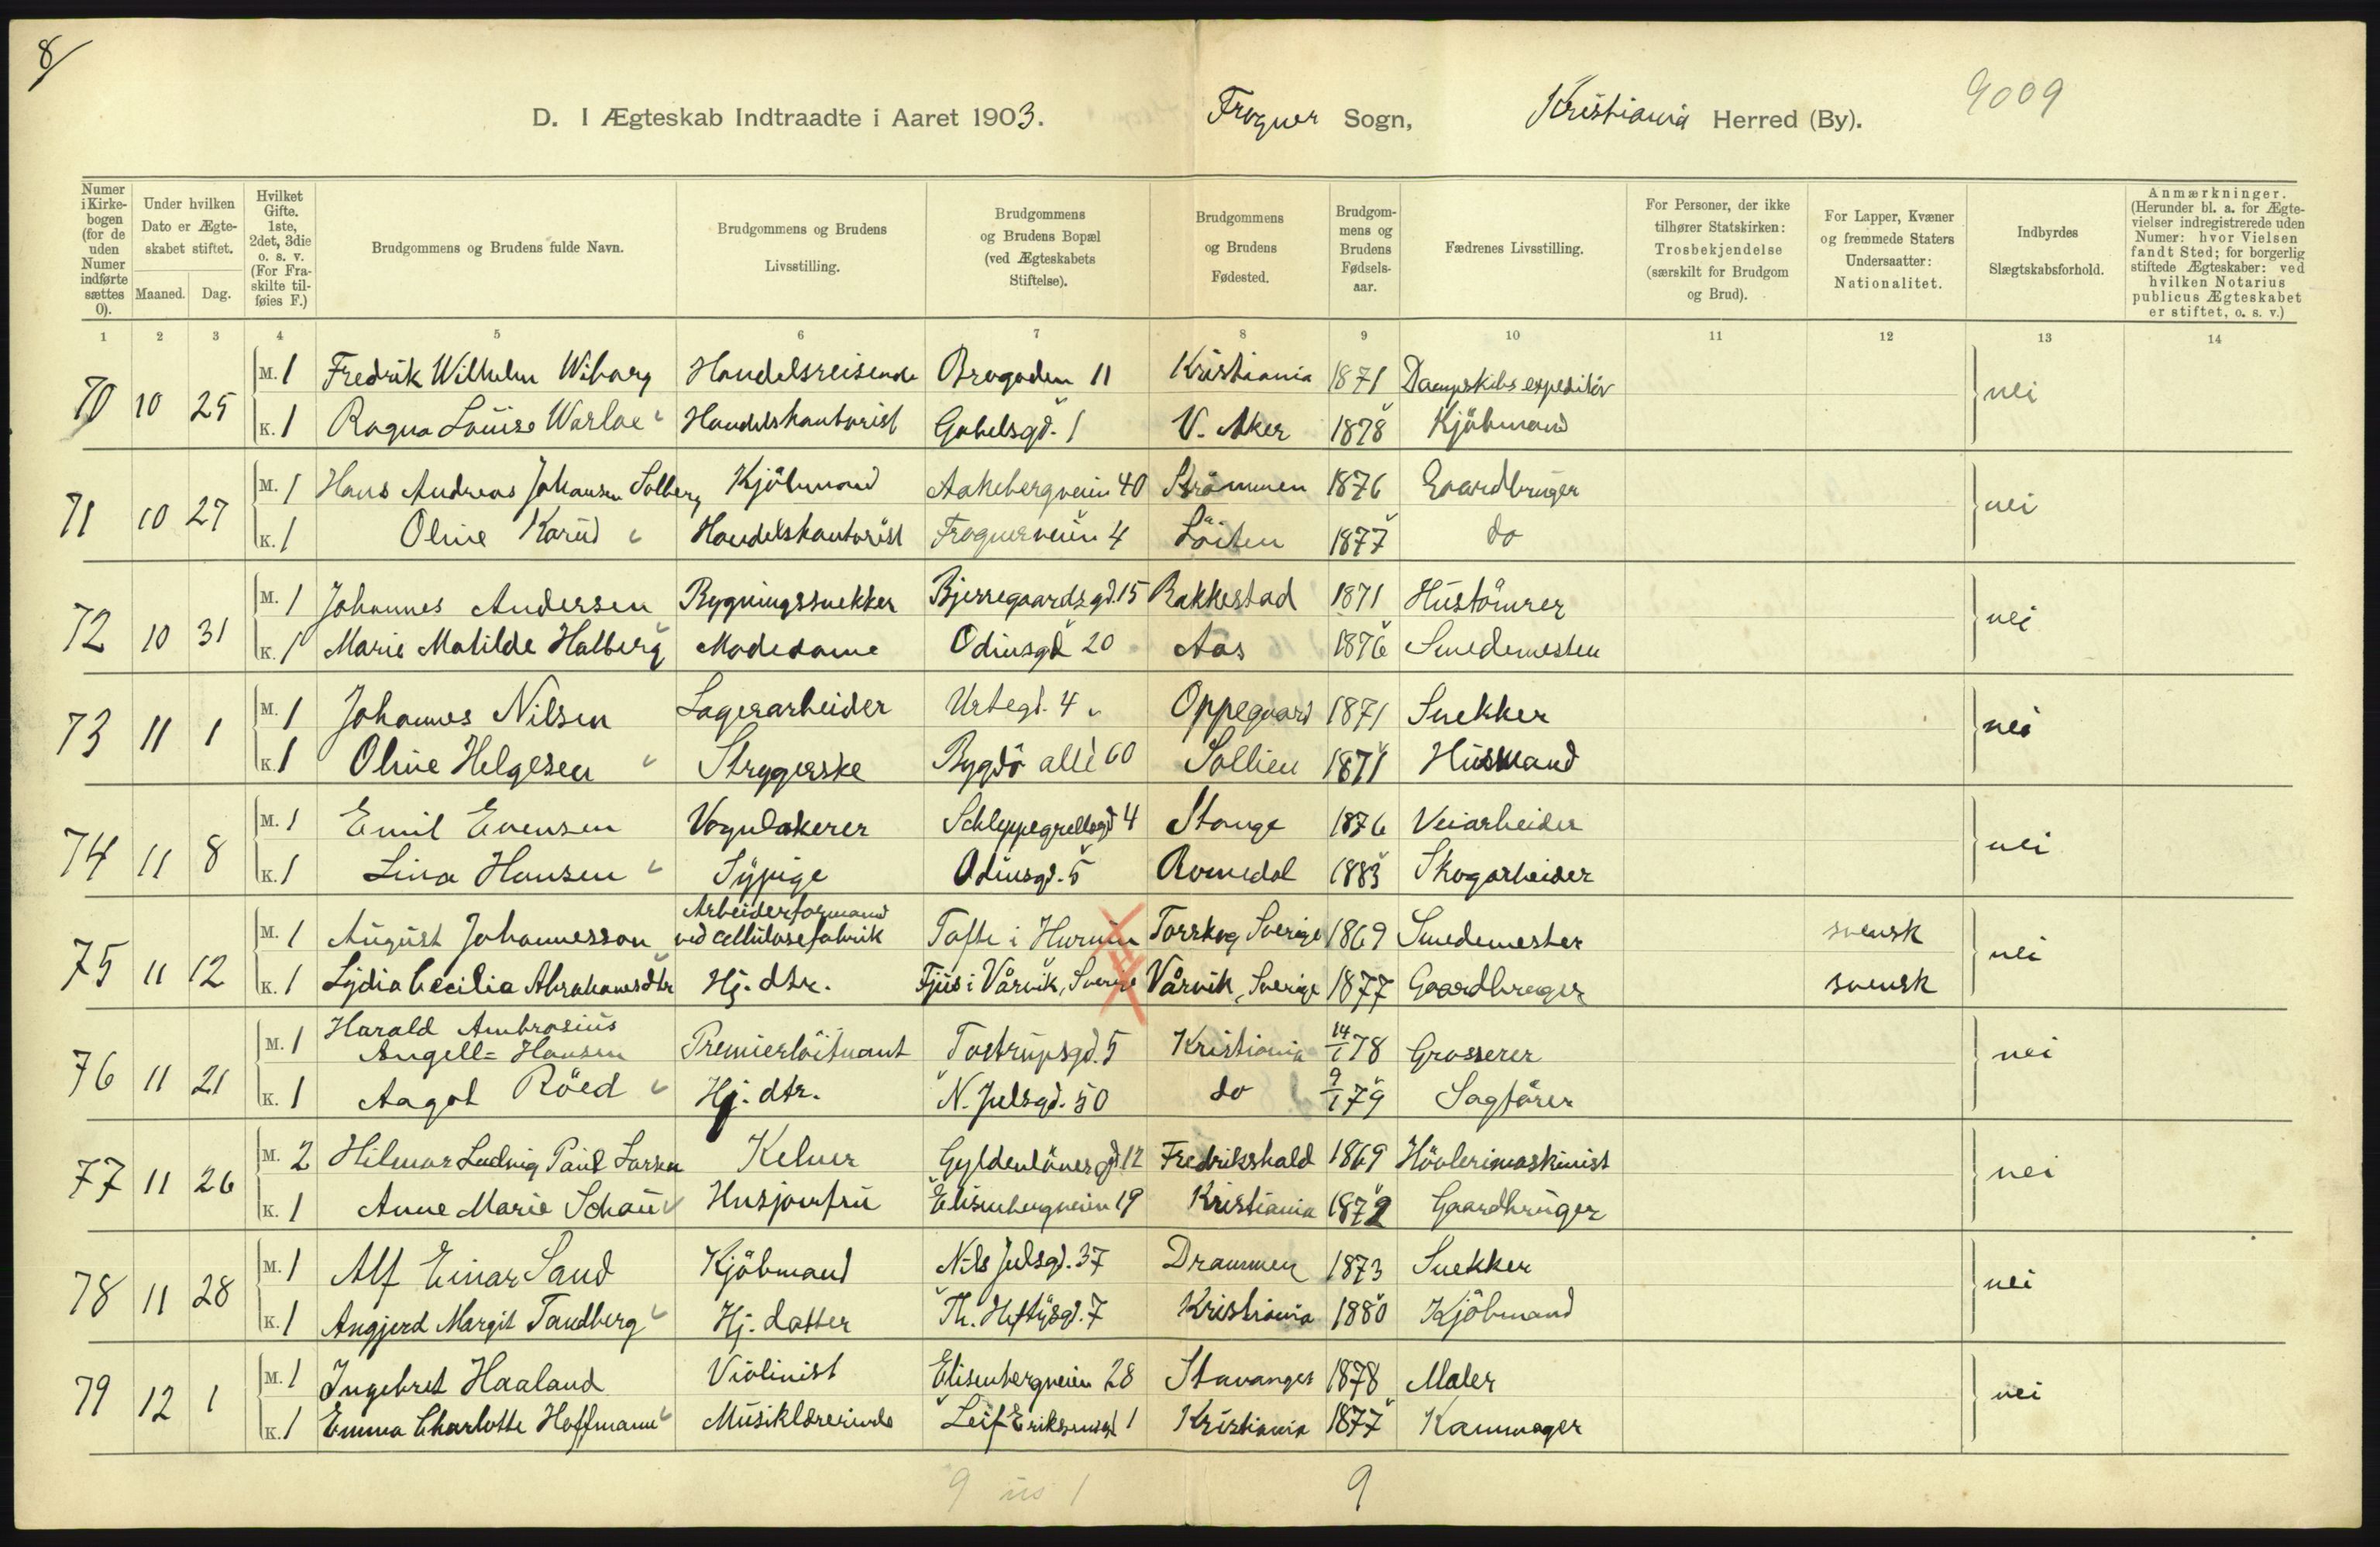 8
D. I Ægteskab Indtraadte i Aaret 1903. Frogner Sogn, Kristiania Herred (By). 9009
Numer i Kirke-bogen (for de uden Numer indførte sættes 0). Under hvilken Dato er Ægte-skabet stiftet. Maaned. Dag. Hvilket Gifte. 1ste, 2det, 3die o. s. v. (For Fra-skilte til-føies F.) Brudgommens og Brudens fulde Navn. Brudgommens og Brudens Livsstilling. Brudgommens og Brudens Bopæl (ved Ægteskabets Stiftelse). Brudgommens og Brudens Fødested. Brudgom-mens og Brudens Fødsels-aar. Fædrenes Livsstilling. For Personer, der ikke tilhører Statskirken: Trosbekjendelse (særskilt for Brudgom og Brud). For Lapper, Kvæner og fremmede Staters Undersaatter: Nationalitet. Indbyrdes Slægtskabsforhold. Anmærkninger. (Herunder bl. a. for Ægte-vielser indregistrerede uden Numer: hvor Vielsen fandt Sted; for borgerlig stiftede Ægteskaber: ved hvilken Notarius publicus Ægteskabet er stiftet, o. s. v.)
1 2 3 4 5 6 7 8 9 10 11 12 13 14
70 10 25 M. 1 Fredrik Wilhelm Wiborg Handelsreisende Brogaden 11 Kristiania 1871 Dampskibsexpeditör nei
K. 1 Ragna Louise Warloe Handelskontorist Gabelsgd. 1 V. Aker 1878 Kjöbmand
71 10 27 M. 1 Hans Andreas Johansen Solberg Kjöbmand Aakebergveien 40 Strömmen 1876 Gaardbruger nei
K. 1 Oline Karud Handelskontorist Frognerveien 4 Löiten 1877 do
72 10 31 M. 1 Johannes Andersen Bygningssnekker Bjerregaardsgd. 15 Rakkestad 1871 Hustömrer nei
K. 1 Marie Matilde Halberg Modedame Odinsgd 20 Aas 1876 Smedemester
73 11 1 M. 1 Johannes Nilsen Lagerarbeider Urtegd. 4 Oppegaard 1871 Snekker nei
K. 1 Oline Helgesen Strygerske Bygdö allé 60 Sollien 1871 Husmand
74 11 8 M. 1 Emil Evensen Vognlakerer Schleppegrellsgd 4 Stange 1876 Veiarbeider nei
K. 1 Lina Hansen Sypige Odinsgd. 5 Romedal 1883 Skogarbeider
75 11 12 M. 1 August Johannesson Arbeiderformand ved cellulosefabrik Tofte i Hurum Torrskog Sverige 1869 Smedemester svensk nei
K. 1 Lydia Cecilia Abrahamsdtr Hj. dtr. Tjus i Vårvik, Sverige Vårvik, Sverige 1877 Gaardbruger svensk
76 11 21 M. 1 Harald Ambrosius Angell-Hansen Premierlöitnant Tostrupsgd. 5 Kristiania 14/1 78 Grosserer nei
K. 1 Aagot Röed Hj. dtr. N. Julsgd. 50 do 9/1 79 Sagförer
77 11 26 M. 2 Hilmar Ludvig Paul Larsen Kelner Gyldenlövesgd 12 Fredrikshald 1869 Hövlerimaskinist nei
K. 1 Anne Marie Schau Husjomfru Elisenbergveien 19 Kristiania 1872 Gaardbruger
78 11 28 M. 1 Alf Einar Sand Kjöbmand Nils Julsgd. 37 Drammen 1873 Snekker nei
K. 1 Angjerd Margit Tandberg Hj. datter Th. Heftysgd. 7 Kristiania 1880 Kjöbmand
79 12 1 M. 1 Ingebret Haaland Violinist Elisenbergveien 28 Stavanger 1878 Maler nei
K. 1 Emma Charlotte Hoffmann Musiklærerinde Leif Eriksensgd 1 Kristiania 1877 Kammager
9 1 9